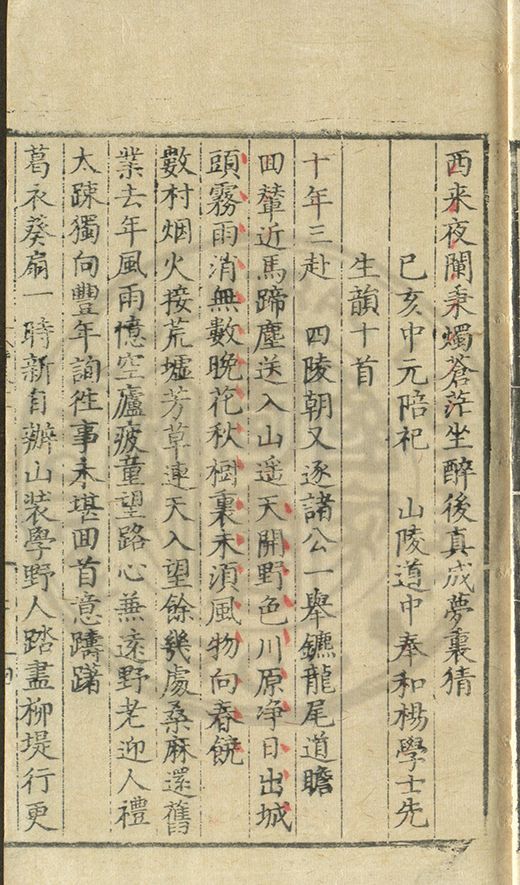 西来夜闌秉燭蒼茫坐醉後真成夢裏猜
已亥中元陪祀　山陵道中奉和楊學士先
生韻十首
十年三赴　四陵朝又逐諸公一舉鑣龍尾道瞻
回輦近馬蹄塵送入山遥天開野色川原净日出城
頭霧雨消無數晚花秋稠裏未須風物向春饒
數村烟火接荒墟芳草連天入望餘幾處桑麻還舊
業去年風雨憶空廬疲童望路心兼遠野老迎人禮
太踈獨向豐年詢徃事未堪回首意躊躇
葛衣葵扇一時新自辦山装學野人踏盡柳堤行更